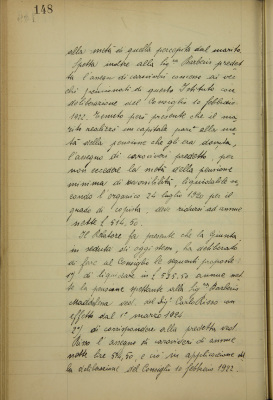 148
alla metà di quella percepita dal marito.
Spetta inoltre alla Sig.ra Barberis predet
ta l'assegno di caroviveri comune ai vec
chi pensionati di questo Istituto con
deliberazione del Consiglio 10 febbraio
1922. Tenuto però presente che il ma
rito realizzò in capitale parte alla me
tà della pensione che gli era dovuta,
l'assegno di caroviveri predetto, per
non eccedere la metà della pensione
minima di riversibilità, liquidabile se
condo l'organico 24 luglio 1920 per il
grado di Capista, deve ridursi ad annue
nette £ 514,50.
Il Relatore fa presente che la Giunta,
in seduta di oggi stesso, ha deliberato
di fare al Consiglio le seguenti proposte:
1°) di liquidare in £ 525.50 annue net
te la pensione spettante alla Sig.ra Barberis
Maddalena ved. del Sig. Carlo Risso con
effetto dal 1° marzo 1925
2°) di corrispondere alla predetta ved.
Risso l'assegno di caroviveri di annue
nette lire 514,50, e ciò in applicazione del
la deliberazione del Consiglio 10 febbraio 1922.